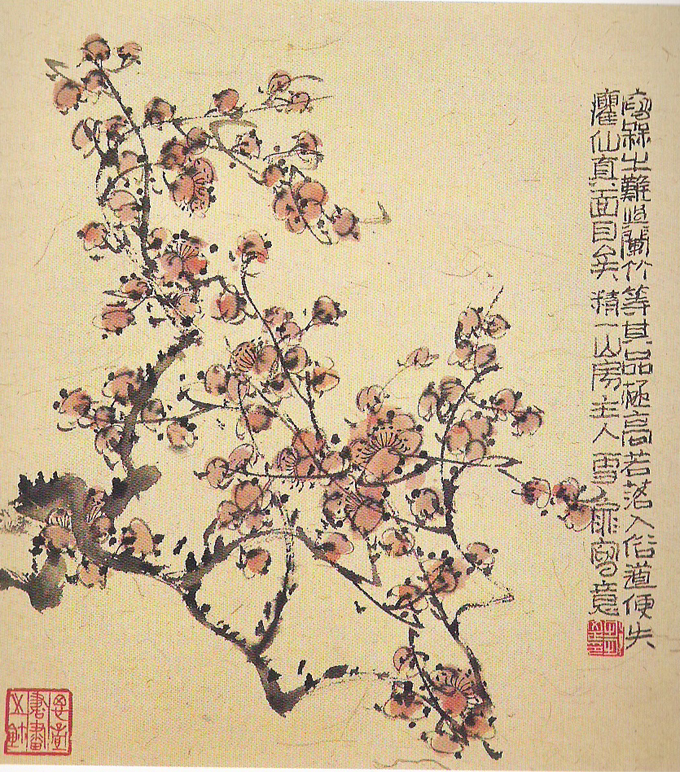 寫槑之難蘭竹等其品極高若落入俗道便失
癯仙真面目矣 精一山房主人雪寫意